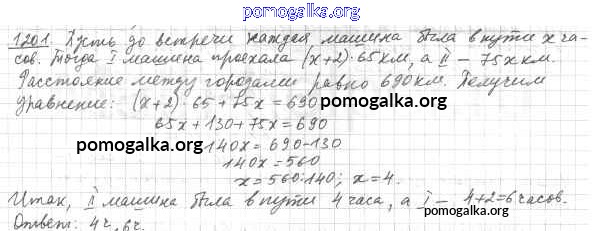 pomogalka.org
1201. Пусть до встречи каждая машина была в пути x ча-
сов. Тогда I машина проехала (x+2)·65 км, а II – 75x км.
Расстояние между городами равно 690 км. Получим
уравнение: (x+2)·65+75x=690
pomogalka.org
65x+130+75x=690
pomogalka.org
140x=690-130
140x=560
x=560:140; x=4.
Итак, II машина была в пути 4 часа, а I – 4+2=6 часов.
pomogalka.org
Ответ: 4ч, 6ч.